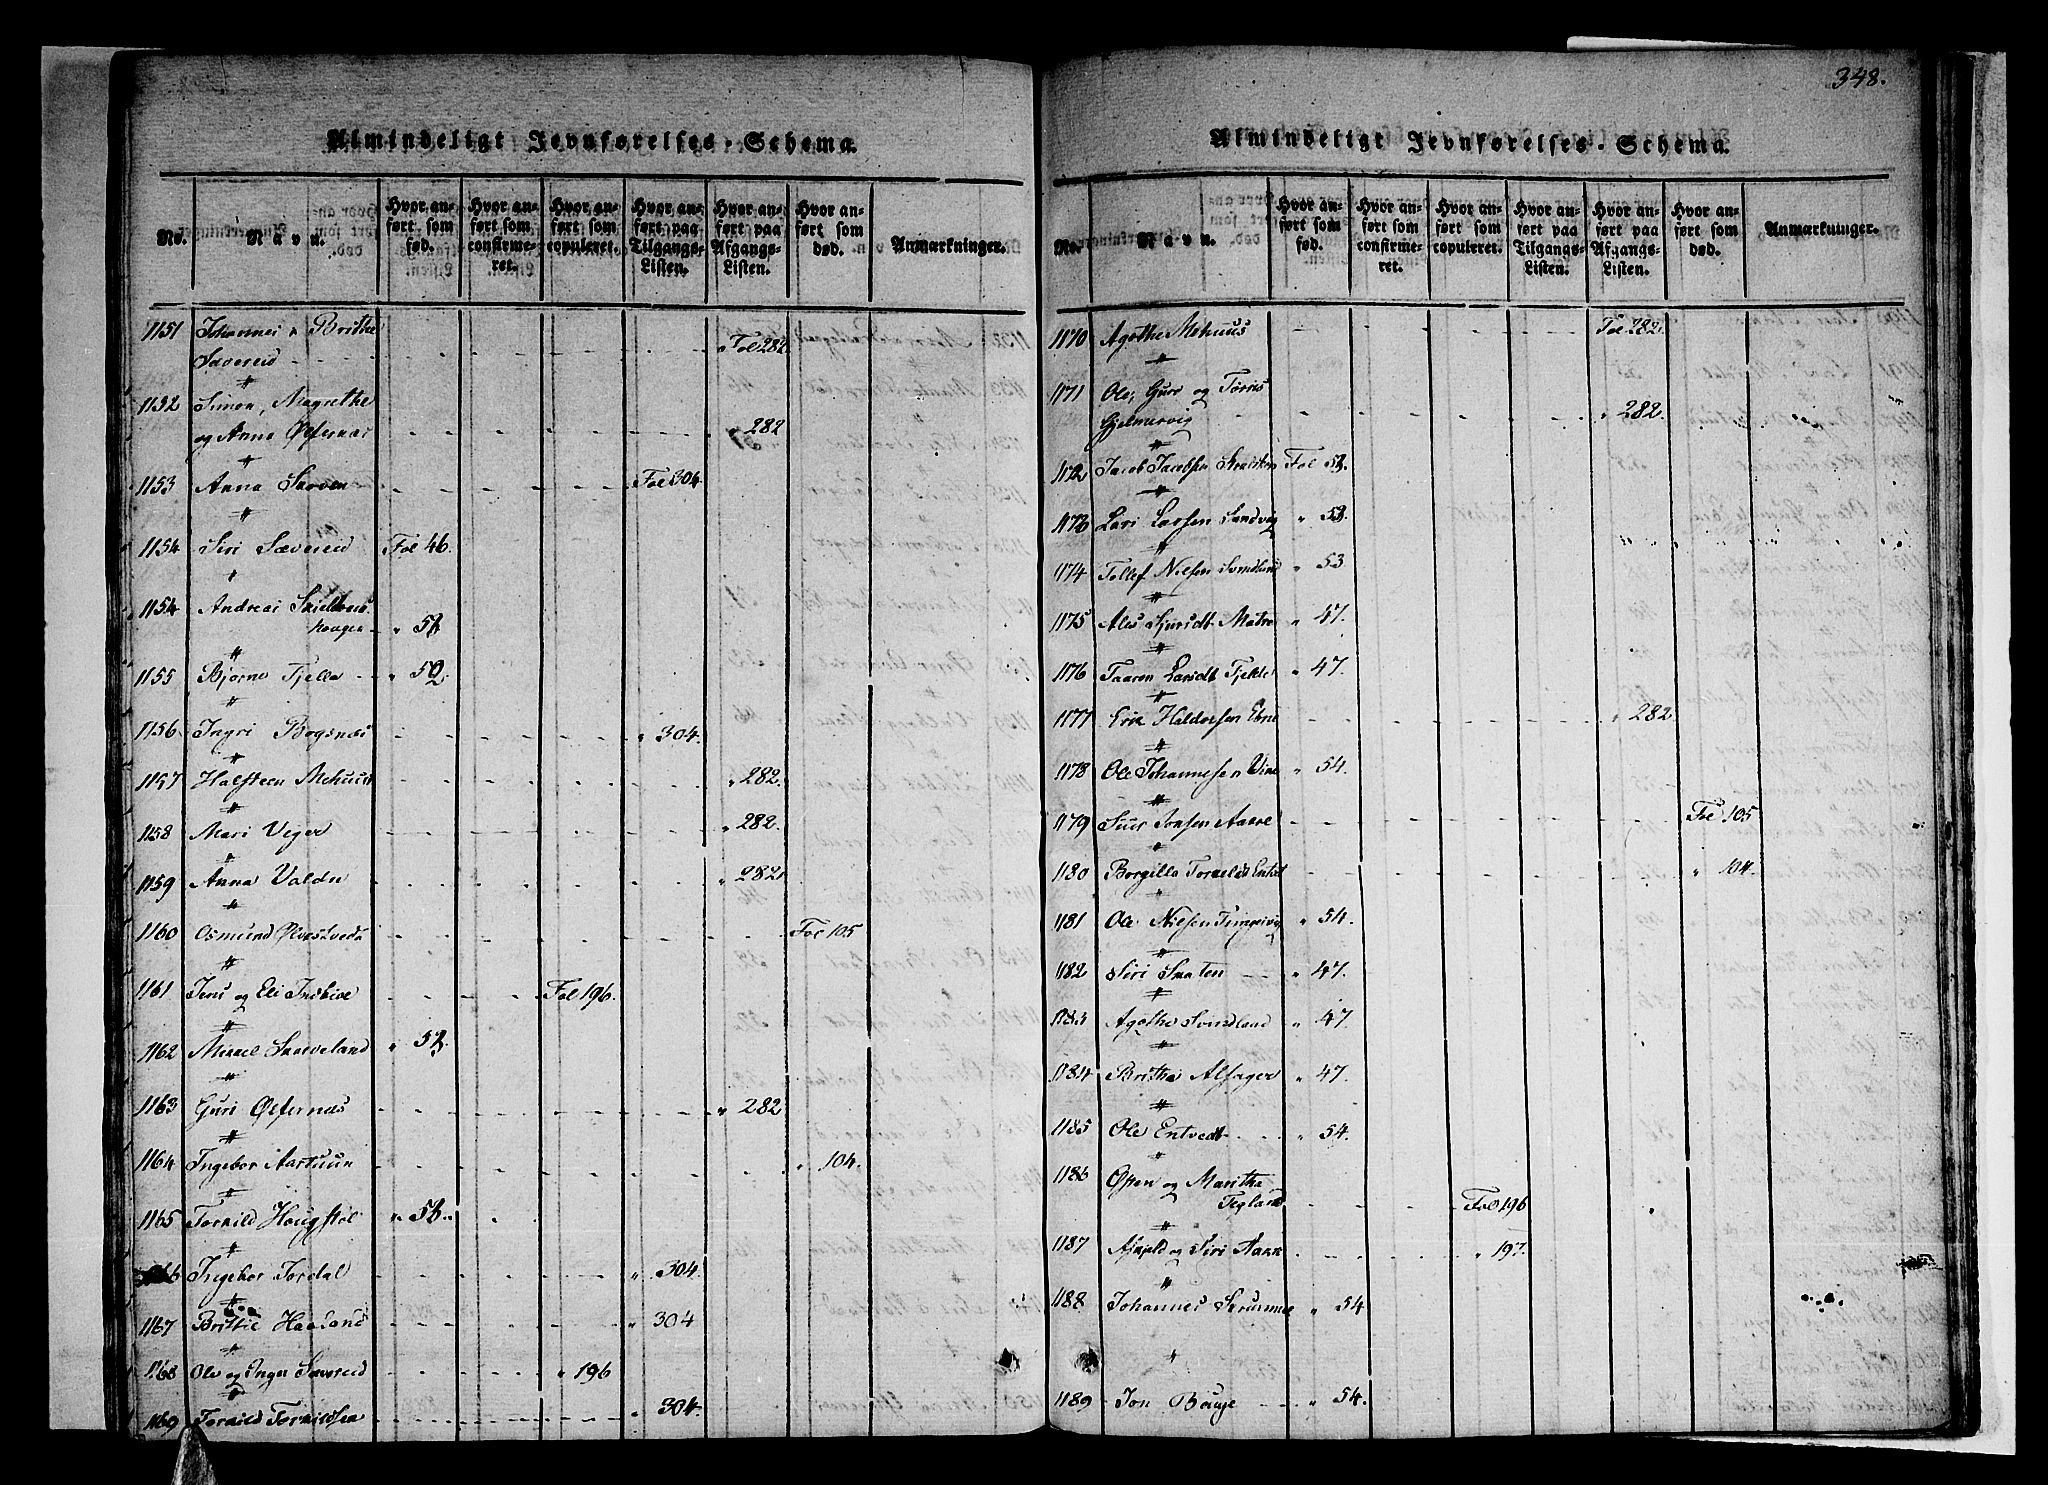 Almindeligt Jevnførelses-Schema.
No.
Navn.
Hvor anført som fød.
Hvor anført som confirmeret.
Hvor anført som copuleret.
Hvor anført paa Tilgangs-Listen.
Hvor anført paa Afgangs-Listen.
Hvor anført som død.
Anmærkninger.
1151 Johannes & Brithe
Sævereid - - - " Fol 282.
1152 Simon, Magrethe
og Anna Ølfernæs " 282
1153 Anna Skoven Fol 304.
1154 Siri Sævereid Fol 46.
1154 Andreas
haugen " 52
1155 Bjørne Fjelle " 52.
1156 Ingri Bogsnæs " 304.
1157 Halsteen Mehuus " 282.
1158 Mari Viger " 282.
1159 Anna Valdn " 282.
1160 Osmund Ølvestvedt Fol 105
1161 Jens og Eli Indbioe Fol 196.
1162 Mikael Skoveland " 52.
1163 Guri Ølfernæs " 282
1164 Ingebor Aastuun " 104.
1165 Torkild Hougstøl " 53.
1166 Ingebor Jordal " 304.
1167 Brithe Haaland " 304
1168 Ole og Inger Sævereid " 196
1169 Torkild Torkildsen " 304.
348.
Almindeligt Jevnførelses-Schema.
No.
Navn.
Hvor anført som fød.
Hvor anført som confirmeret.
Hvor anført som copuleret.
Hvor anført paa Tilgangs-Listen.
Hvor anført paa Afgangs-Listen.
Hvor anført som død.
Anmærkninger.
1170 Agathe Mehuus Fol 282.
1171 Ole, Guro og Tørris
Gjelmervig " 282.
1172 Jacob Jacobsen Fol 53.
1173 Lars Larsen Sandvig " 53.
1174 Tollef Nilsen Svindland " 53
1175 Ales Sjursdt Matre " 47.
1176 Taaron Larsdt Fjelde " 47.
1177 Erik Haldorsen Ebne " 282
1178 Ole Johannesen Vine " 54.
1179 Siur Jonsen Aakre Fol 105
1180 Borgilla Torkelsd " 104.
1181 Ole Nilsen " 54.
1182 Siri Skaten " 47.
1183 Agathe Svindland " 47.
1184 Britha Alsager " 47.
1185 Ole Entvedt " 54.
1186 Østen og Maritha
Tegland Fol 196
1187 og Siri Aakre " 197.
1188 Johannes Skrumme " 54
1189 Jon Bouge " 54.